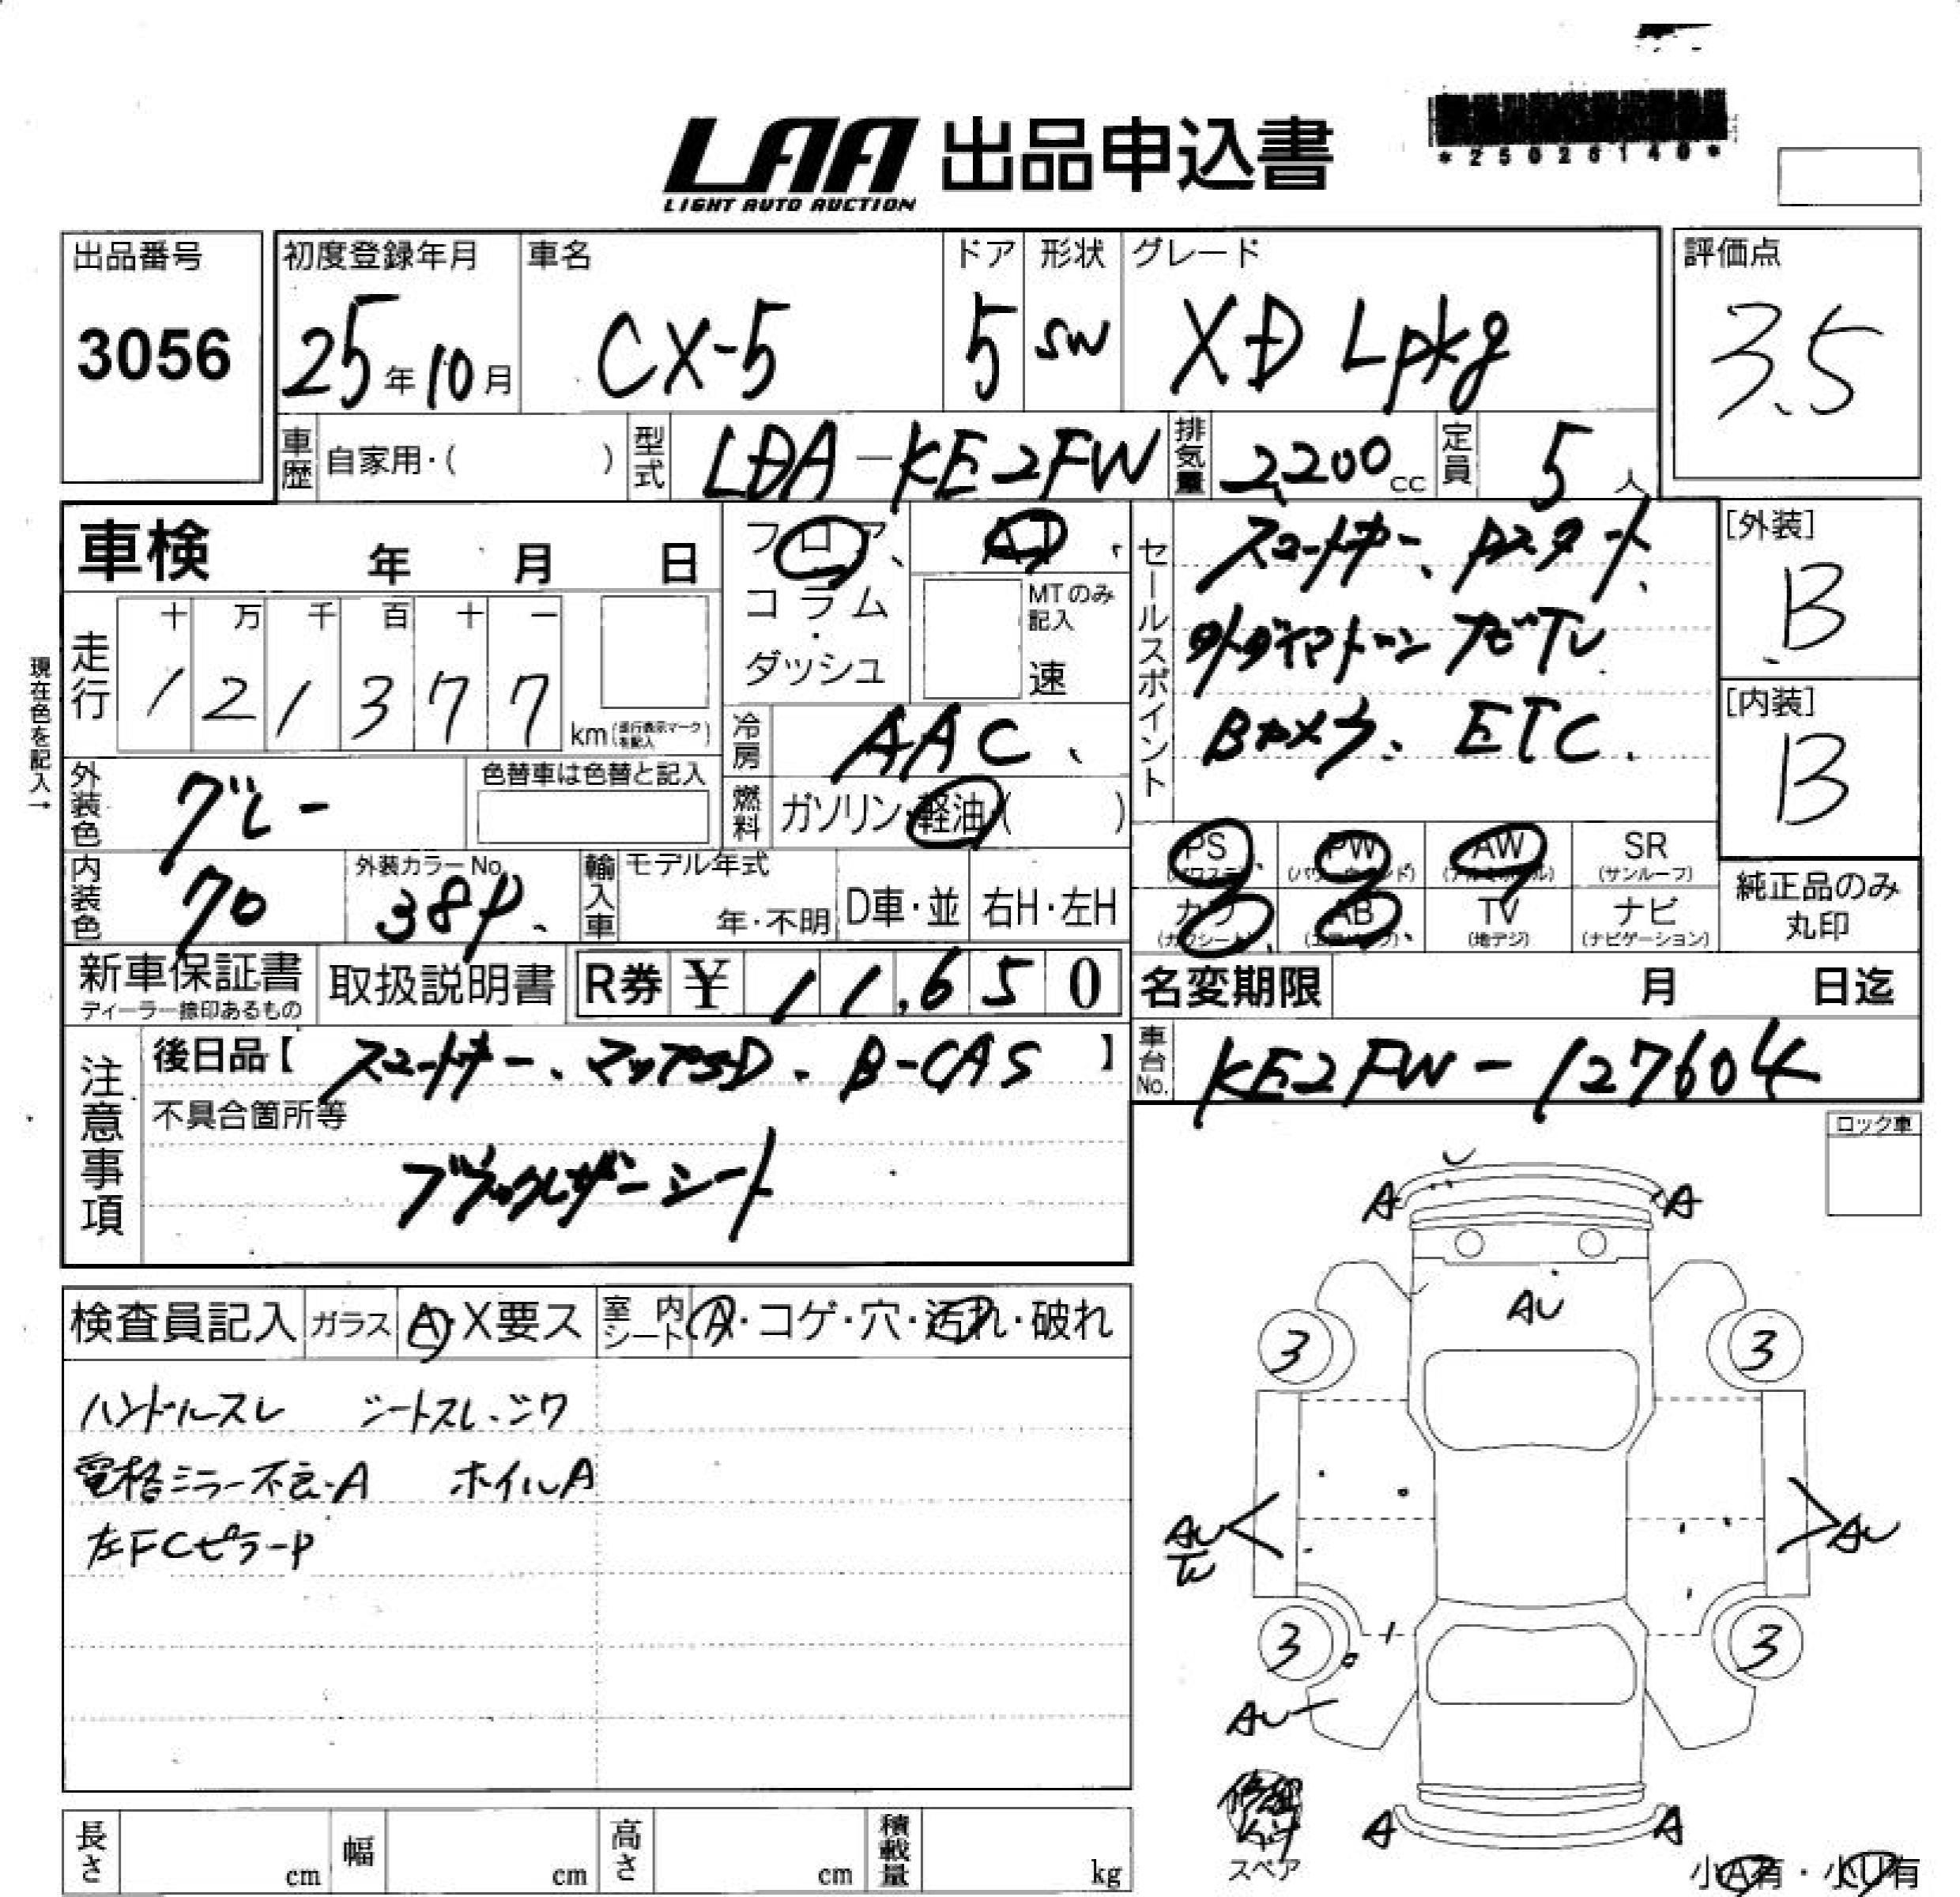 LAA 出品申込書
LIGHT AUTO AUCTION
*25026140*
出品番号
3056
初度登録年月
25年10月
車名
CX-5
ドア
5
形状
SW
グレード
XD Lpkg
評価点
3.5
車歴
自家用・( )
型式
LDA-KE2FW
排気量
2,200cc
定員
5人
車検 年 月 日
フロア、
コラム
・
ダッシュ
AT
MTのみ
記入
速
セールスポイント
スマートキー、Pスタート、
ダイヤトーンナビTV
Bカメラ、ETC.
[外装]
B
[内装]
B
現在色を記入→
走行
十 万 千 百 十 一
1 2 1 3 7 7
km (走行表示マークを記入)
冷房
AAC、
外装色
グレー
色替車は色替と記入
燃料
ガソリン・軽油( )
内装色
70
外装カラーNo.
38P、
輸入車
モデル年式
年・不明
D車・並
右H・左H
PS
PW
AW
SR
(サンルーフ)
AB
TV
(地デジ)
ナビ
(ナビゲーション)
純正品のみ
丸印
新車保証書
ディーラー捺印あるもの
取扱説明書
R券 ¥ 11,650
名変期限 月 日迄
注意事項
後日品【 スマートキー、マップSD、B-CAS 】
車台No.
KE2FW-127604
不具合箇所等
ブラックレザーシート
ロック車
A A
AU
3 3
検査員記入
ガラス
A・X要ス
室内シート
A・コゲ・穴・汚れ・破れ
ハンドルスレ シートスレ、シワ
電格ミラー不良・A ホイルA
左FCピラーP
AU
W
AU
3 3
AU
A A
スペア
小A有・小U有
長さ cm
幅 cm
高さ cm
積載量 kg